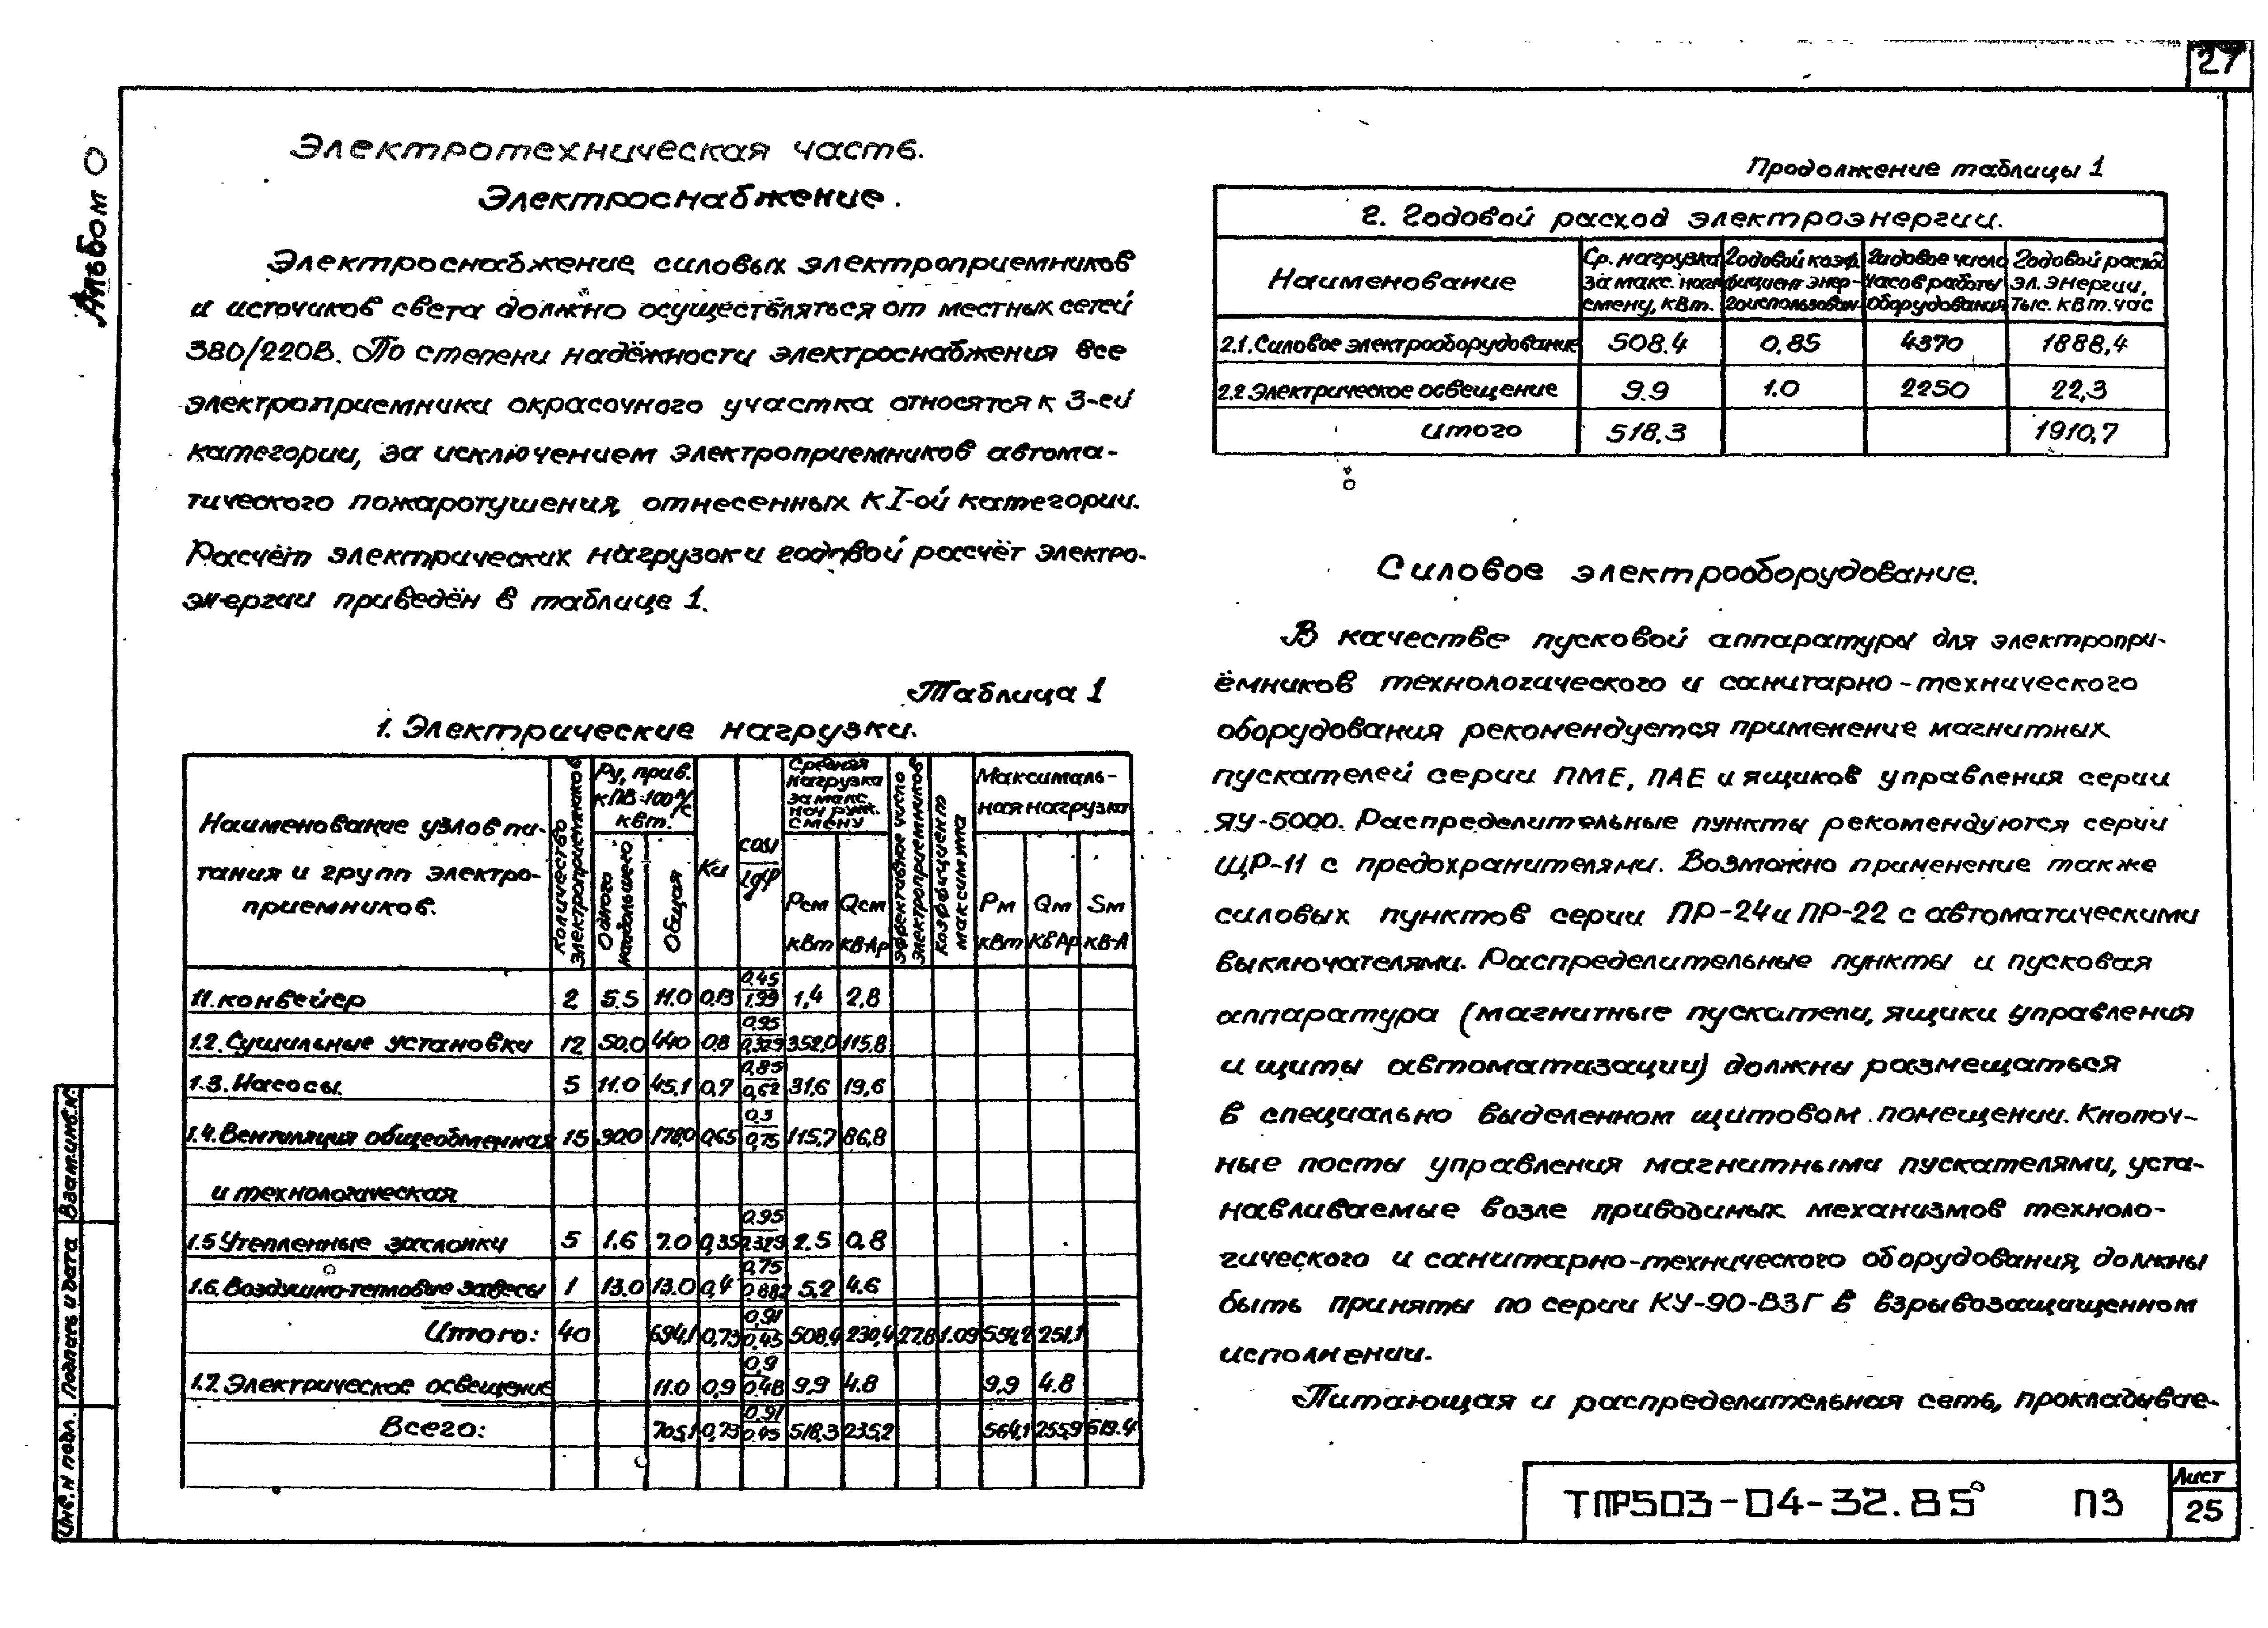 27
Альбом 0
Электротехническая часть.
Электроснабжение.
Электроснабжение силовых электроприемников
и источиков света должно осуществляться от местных сетей
380/220В. По степени надёжности электроснабжения все
электроприемники окрасочного участка относятся к 3-ей
категории, за исключением электроприемников автома-
тического пожаротушения, отнесенных к I-ой категории.
Расчёт электрических нагрузок и годовой рассчёт электро-
энергии приведён в таблице 1.
Таблица 1
1. Электрические нагрузки.
Наименование узлов пи-
тания и групп электро-
приемников.
Количество электроприемников
Ру, прив. к ПВ=100% квт.
Одного наибольшего
Общая
Ки
cosφ
tgφ
Средняя нагрузка за макс. нагруж. смену
Рсм кВт
Qсм кВАр
Эффективное число электроприемников
Коэффициент максимума
Максималь-
ная нагрузка
Рм кВт
Qм кВАр
Sм кВ-А
1.1. конвейер 2 5.5 11.0 0,13 0,45/1,99 1,4 2,8
1.2. Сушильные установки 12 50.0 440 0,8 0,95/0,329 352.0 115.8
1.3. Насосы. 5 11.0 45,1 0,7 0,85/0,62 31,6 19,6
1.4. Вентиляция общеобменная 15 30.0 178.0 0,65 0,8/0,75 115,7 86,8
и технологическая
1.5 Утепленные заслонки 5 1.6 7.0 0,35 0,95/0,329 2.5 0.8
1.6. Воздушно-тепловые завесы 1 13.0 13.0 0,4 0,75/0,882 5.2 4.6
Итого: 40 694,1 0,73 0,91/0,45 508,4 230,4 27.8 1.09 554,2 251,1
1.7. Электрическое освещение 11.0 0,9 0,9/0.48 9.9 4.8 9.9 4.8
Всего: 705,1 0,73 0,91/0.45 518,3 235,2 564,1 255,9 619.4
Продолжение таблицы 1
2. Годовой расход электроэнергии.
Наименование
Ср. нагрузка за макс. нагр. смену, кВт.
Годовой коэффициент энергоиспользован.
Годовое число часов работы оборудования
Годовой расход эл. энергии, тыс. квт. час
2.1. Силовое электрооборудование 508.4 0,85 4370 1888,4
2.2 Электрическое освещение 9.9 1.0 2250 22,3
итого 518,3 1910,7
Силовое электрооборудование.
В качестве пусковой аппаратуры для электропри-
ёмников технологического и санитарно-технического
оборудования рекомендуется применение магнитных
пускателей серии ПМЕ, ПАЕ и ящиков управления серии
ЯУ-5000. Распределительные пункты рекомендуются серии
ЩР-11 с предохранителями. Возможно применение также
силовых пунктов серии ПР-24 и ПР-22 с автоматическими
выключателями. Распределительные пункты и пусковая
аппаратура (магнитные пускатели, ящики управления
и щиты автоматизации) должны размещаться
в специально выделенном щитовом помещении. Кнопоч-
ные посты управления магнитными пускателями, уста-
навливаемые возле приводимых механизмов техноло-
гического и санитарно-технического оборудования, должны
быть приняты по серии КУ-90-ВЗГ в взрывозащищенном
исполнении.
Питающая и распределительная сеть, прокладывае-
Инв. N подл. Подпись и дата Взам.инв.N
ТПР503-04-32.85 ПЗ
Лист
25